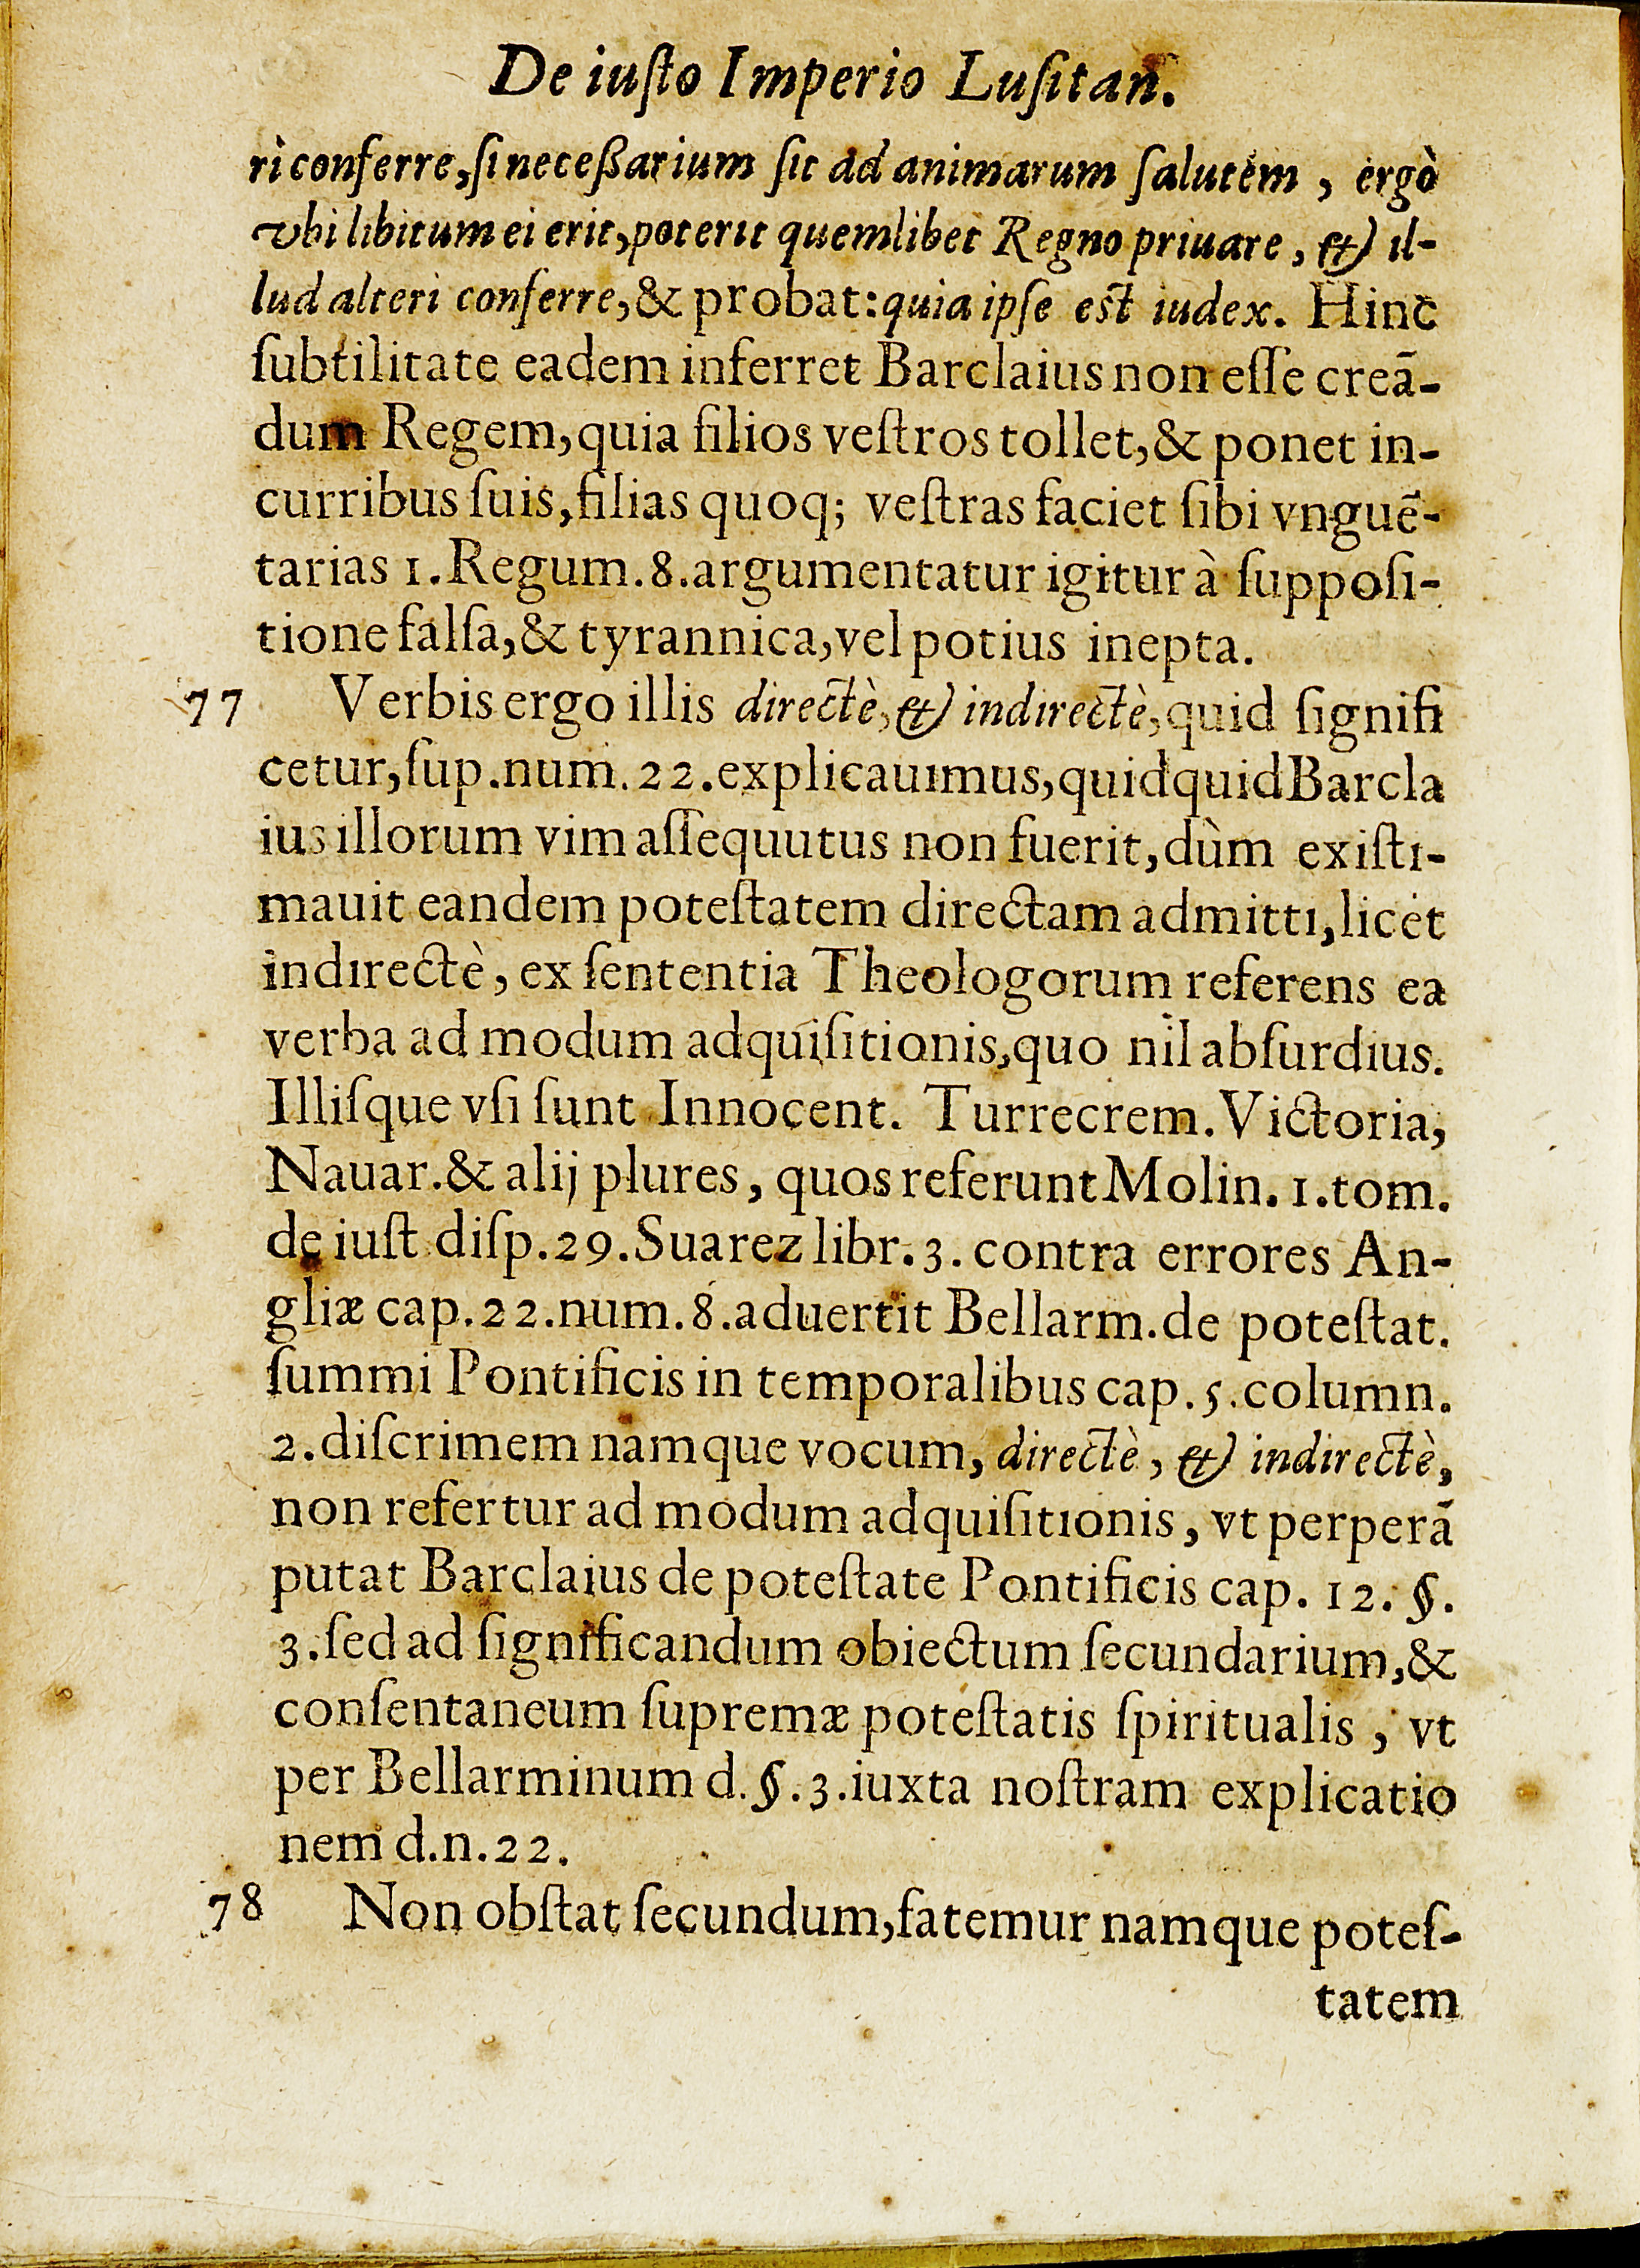 De iuſto Imperio Luſitan.
ri conferre, ſi neceßarium ſit ad animarum ſalutem, ergò
vbi libitum ei erit, poterit quemlibet Regno priuare, & il-
lud alteri conferre, & probat: quia ipſe eſt iudex. Hinc
ſubtilitate eadem inferret Barclaius non eſſe creã-
dum Regem, quia filios veſtros tollet, & ponet in-
curribus ſuis, filias quoq; veſtras faciet ſibi vnguẽ-
tarias 1. Regum. 8. argumentatur igitur à ſuppoſi-
tione falſa, & tyrannica, vel potius inepta.
77 Verbis ergo illis directè, & indirectè, quid ſignifi
cetur, ſup. num. 22. explicauimus, quidquid Barcla
ius illorum vim aſſequutus non fuerit, dùm exiſti-
mauit eandem poteſtatem directam admitti, licet
indirectè, ex ſententia Theologorum referens ea
verba ad modum adquiſitionis, quo nil abſurdius.
Illiſque vſi ſunt Innocent. Turrecrem. Victoria,
Nauar. & alij plures, quos referunt Molin. 1. tom.
de iuſt diſp. 29. Suarez libr. 3. contra errores An-
gliæ cap. 22. num. 8. aduertit Bellarm. de poteſtat.
ſummi Pontificis in temporalibus cap. 5. column.
2. diſcrimem namque vocum, directè, & indirectè,
non refertur ad modum adquiſitionis, vt perperã
putat Barclaius de poteſtate Pontificis cap. 12. §.
3. ſed ad ſignificandum obiectum ſecundarium, &
conſentaneum ſupremæ poteſtatis ſpiritualis, vt
per Bellarminum d. §. 3. iuxta noſtram explicatio
nem d. n. 22.
78 Non obſtat ſecundum, fatemur namque poteſ-
tatem